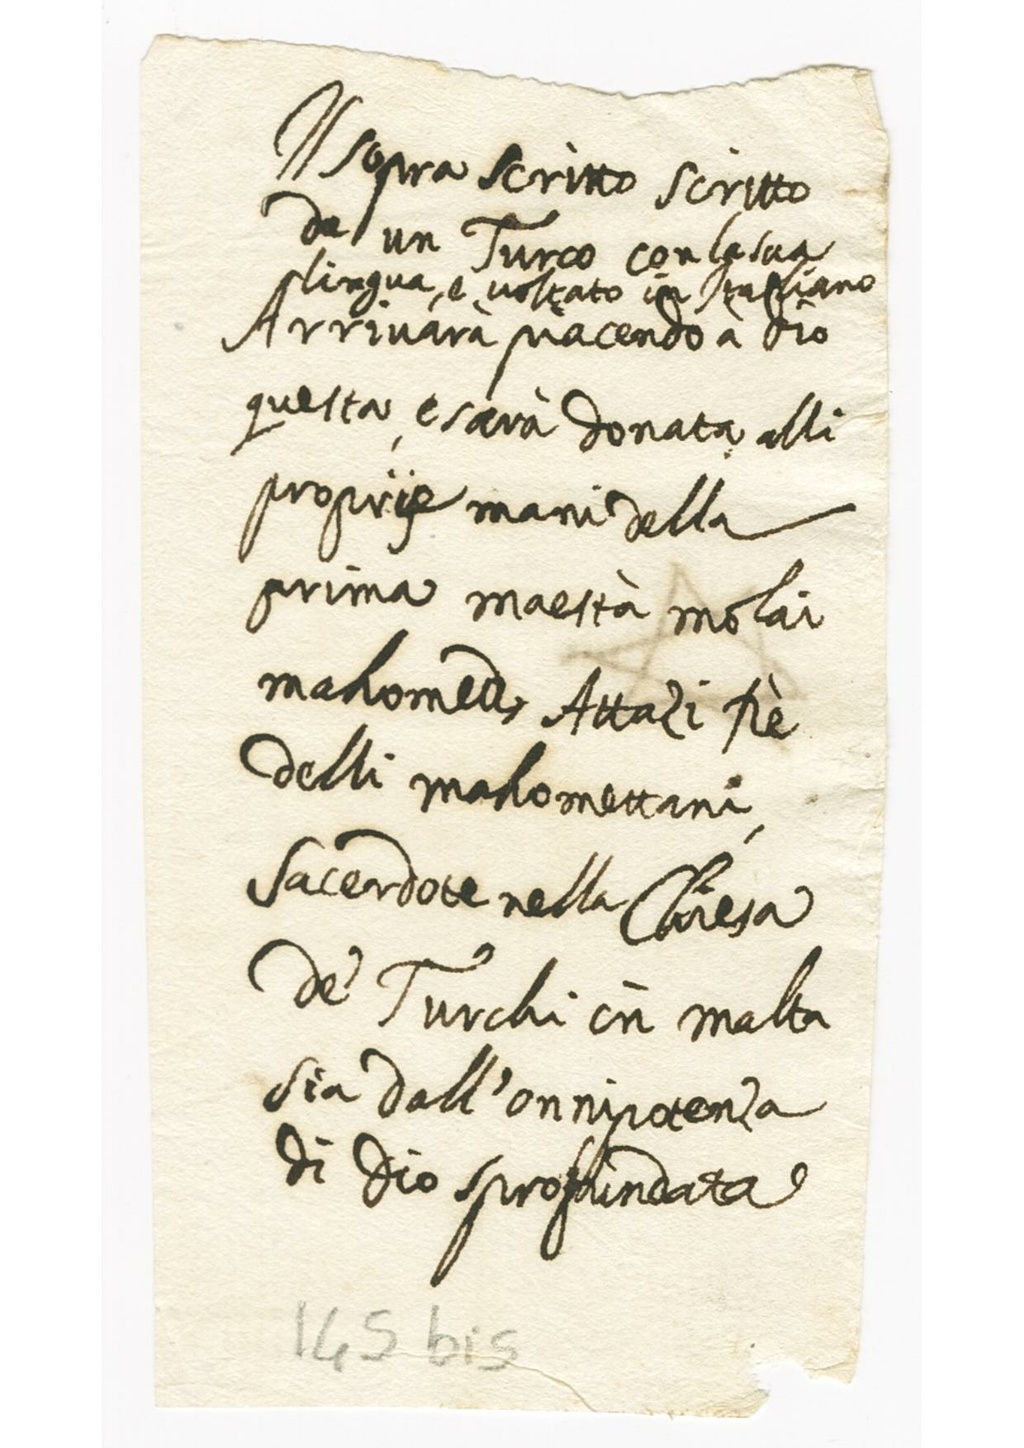 Il sopra scritto scritto
da un Turco con la sua
lingua, e voltato in Italiano
Arrivarà piacendo à dio
questa, e sarà donata alli
proprije mani della
prima maestà molai
mahomed, Attazi
delli mahomettani,
Sacerdote nella Chiesa
de' Turchi in malta
sia dall'onnipotenza
di dio sprofundata
145 bis